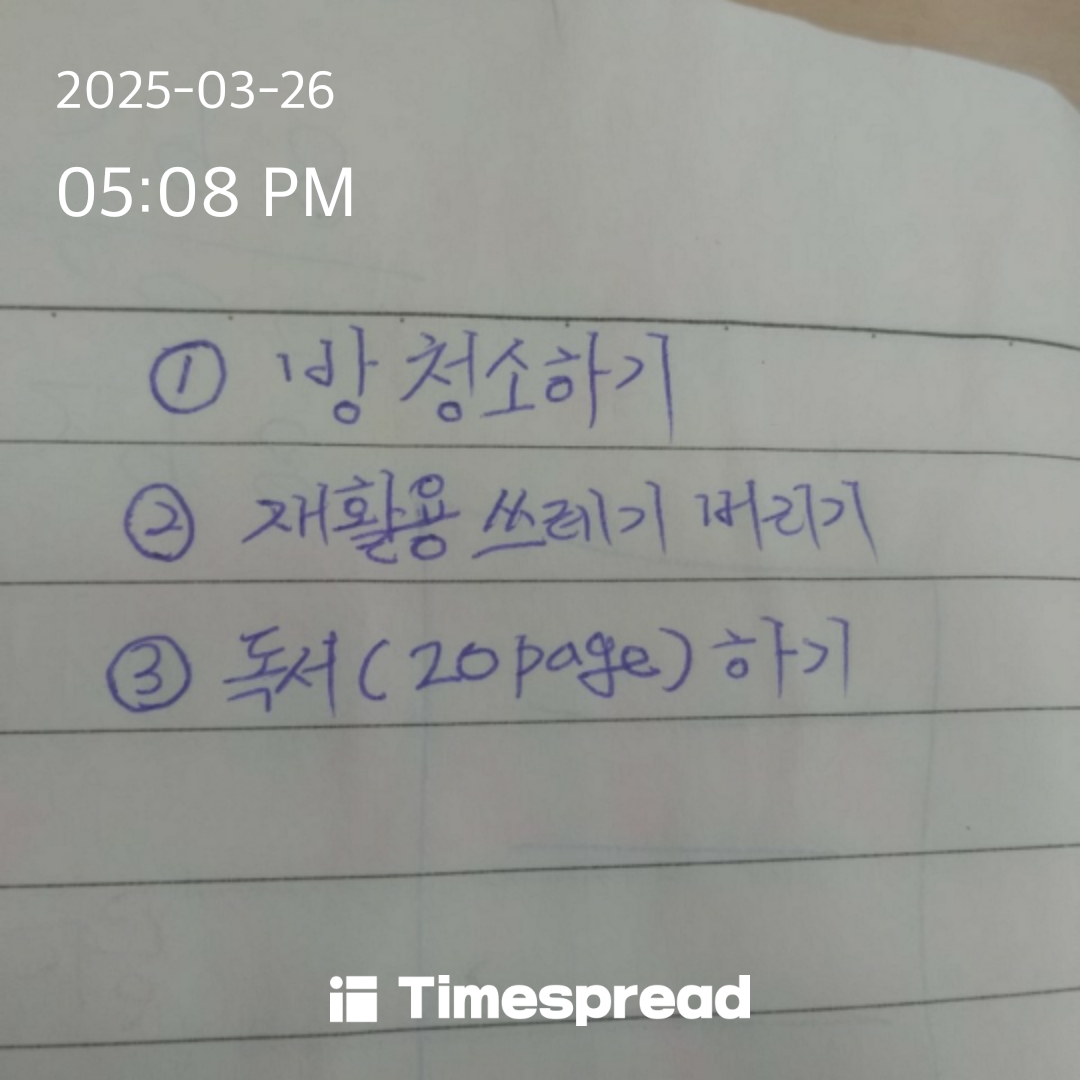 2025-03-26
05:08 PM
① 방 청소하기
② 재활용 쓰레기 버리기
③ 독서(20page)하기
Timespread